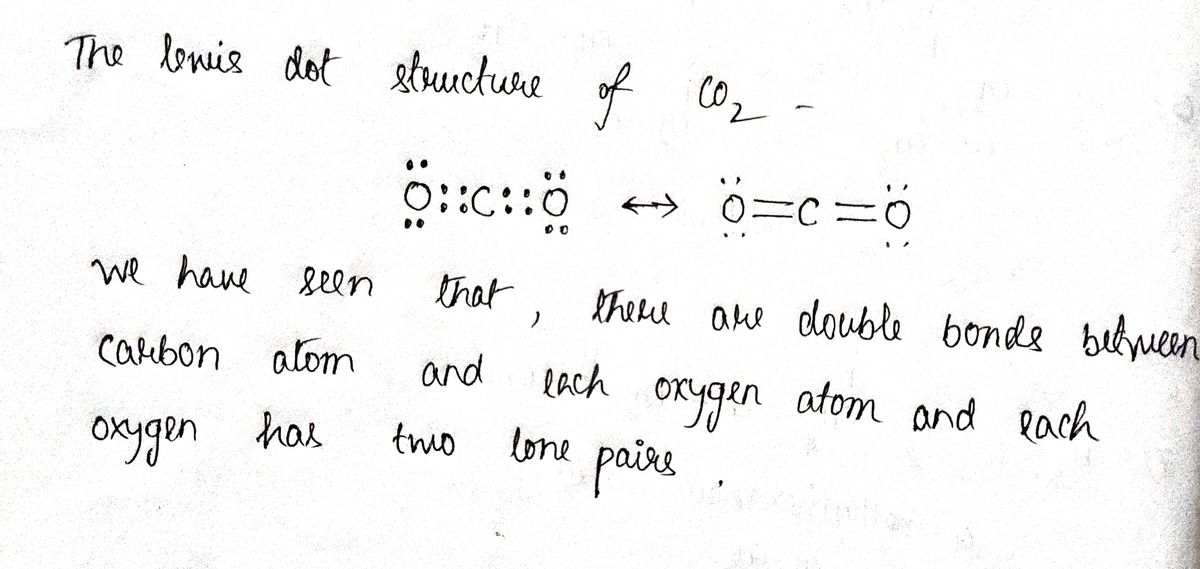 The lewis dot structure of CO₂ -
Ö::C::Ö ↔ Ö=C=Ö
we have seen that, there are double bonds between
carbon atom and each oxygen atom and each
oxygen has two lone pairs.